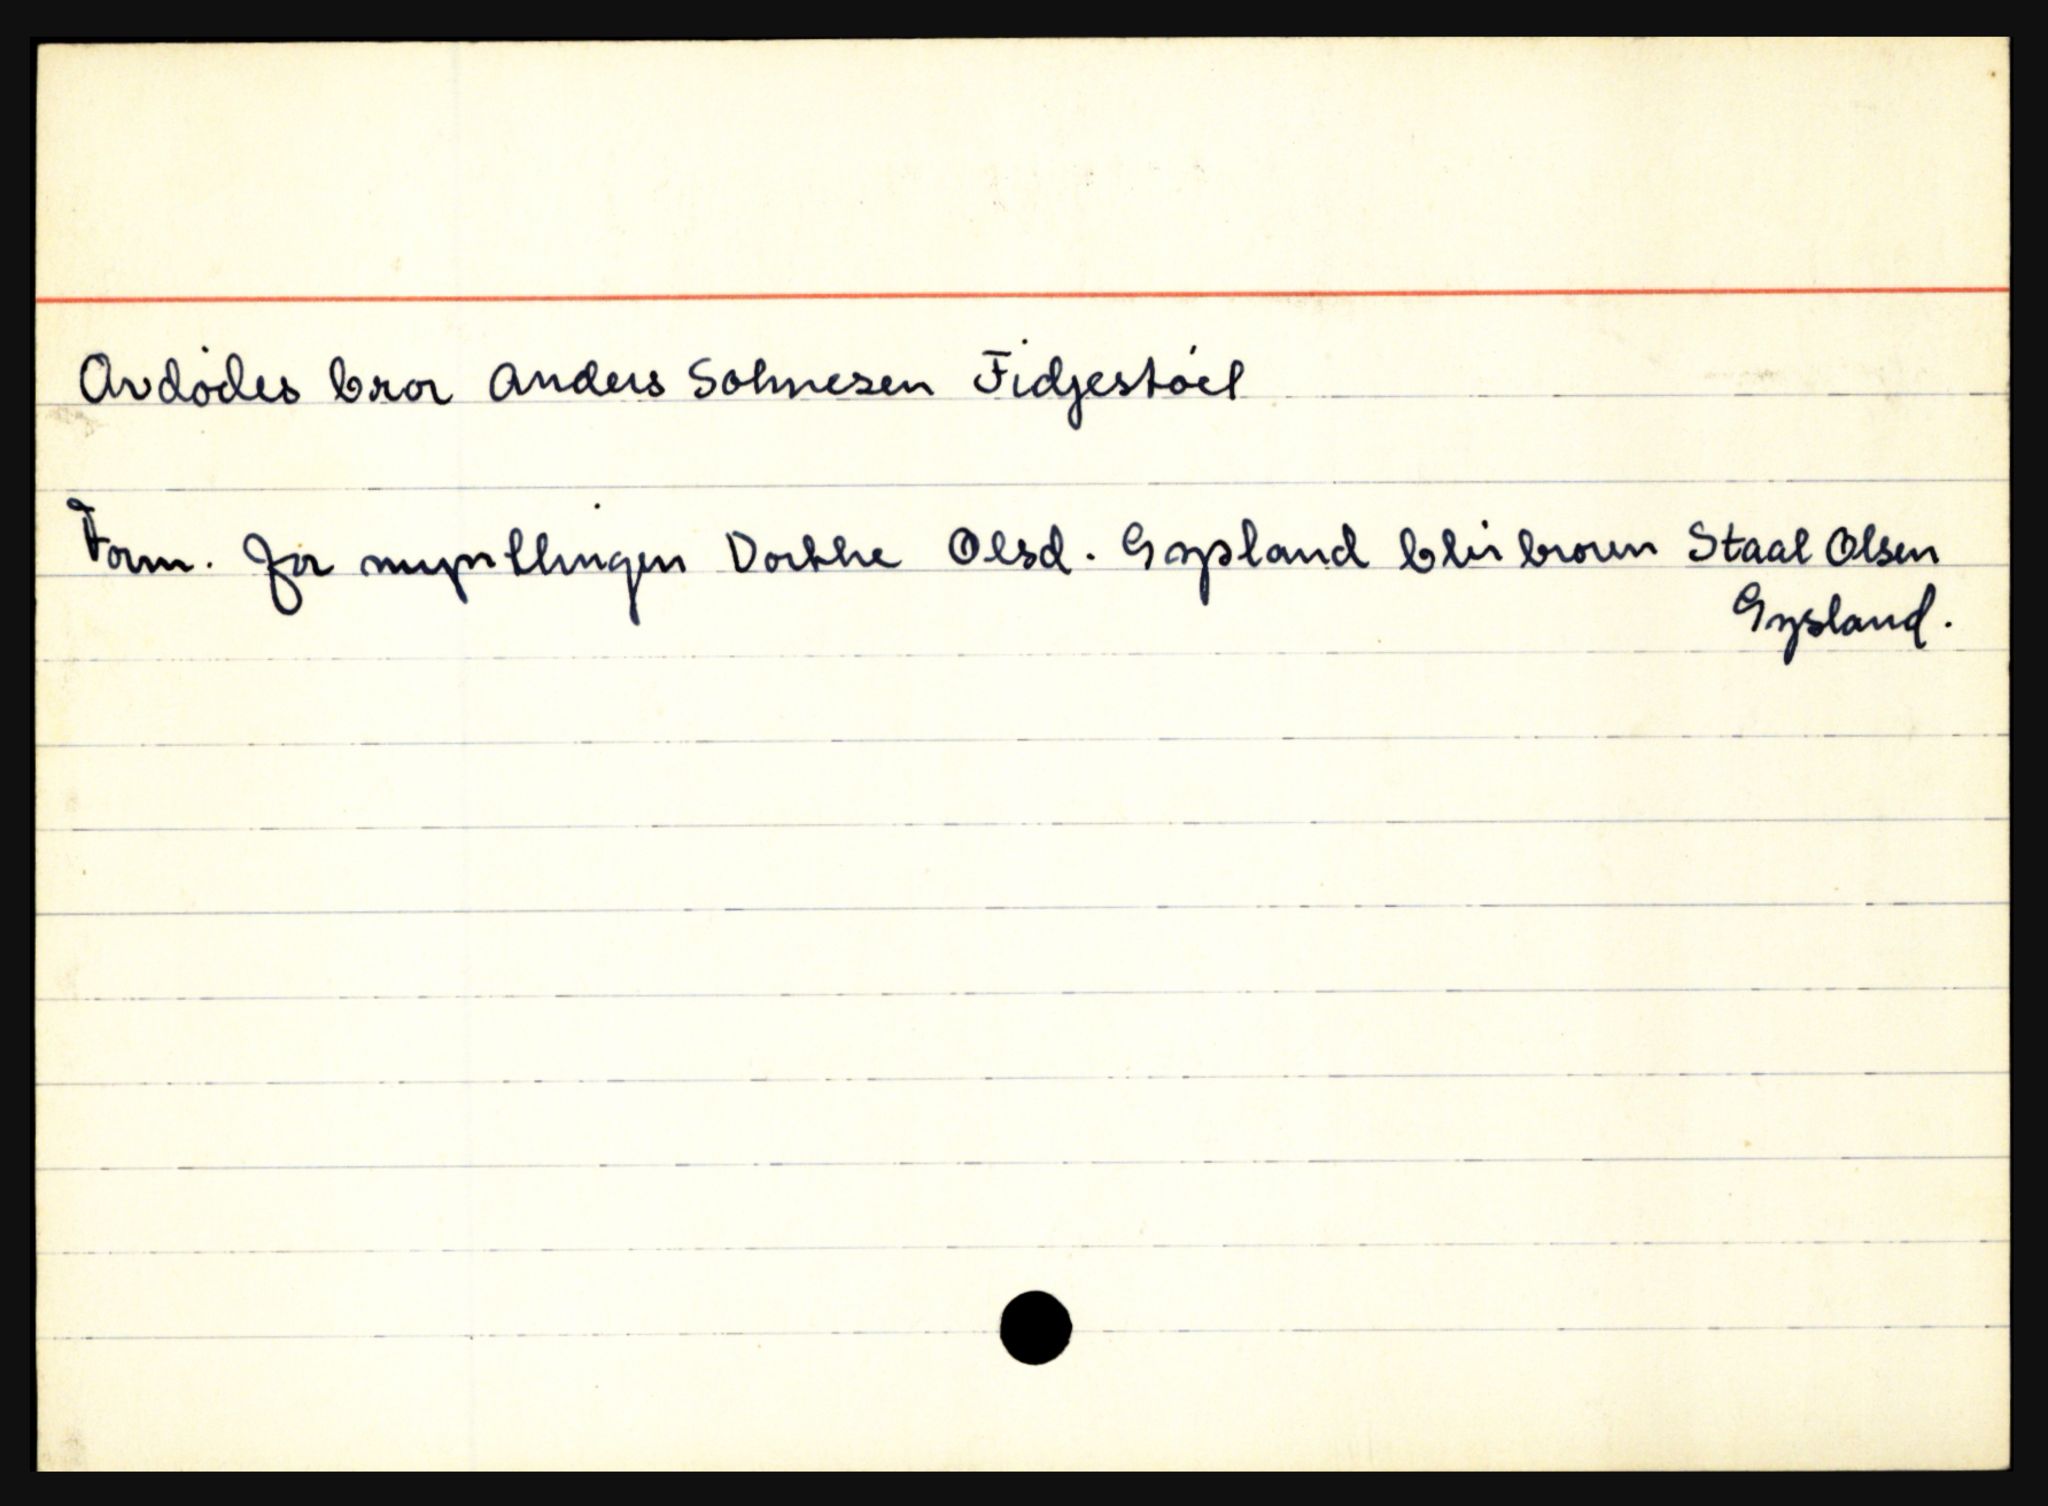 Avdødes bror Anders Solmesen Fidjestøel
Form. for myntlingen Dorthe Olsd. Gysland blir broren Staal Olsen
Gysland.